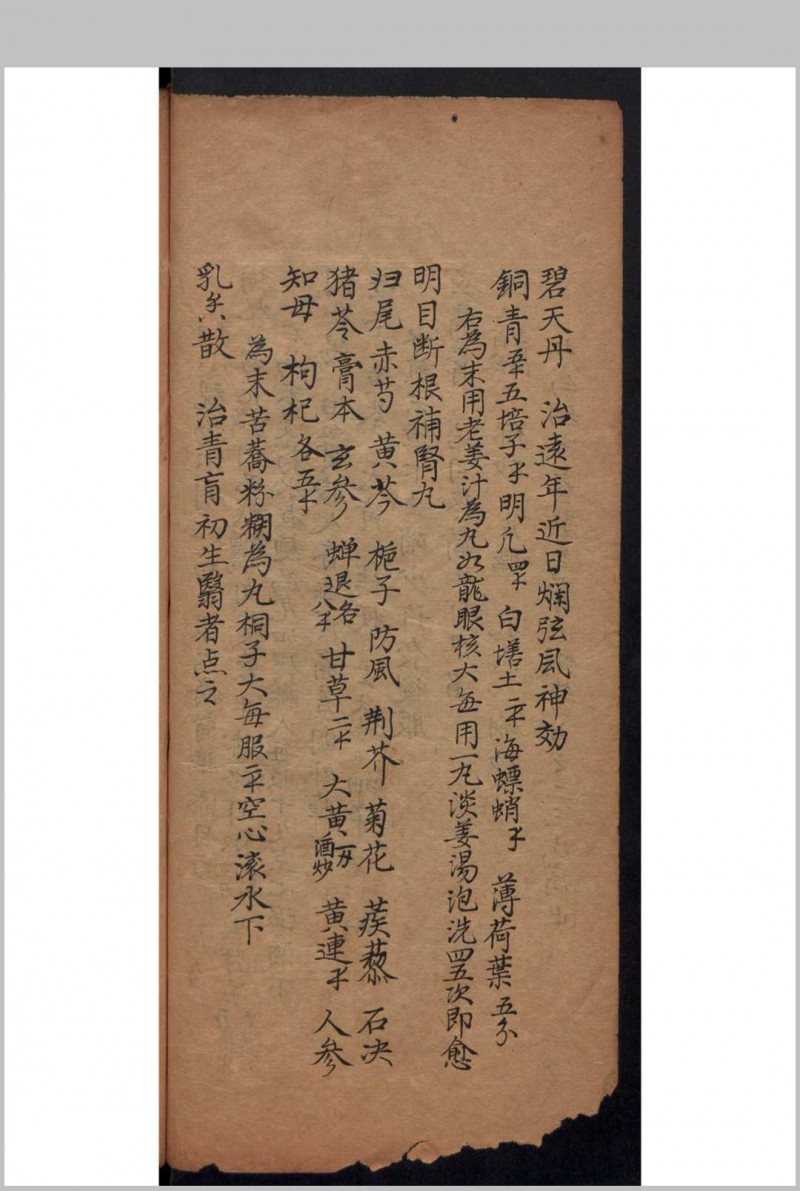 碧天丹 治遠年近日爛弦风神効
銅青 五培子 明凡 白墡土 海螵蛸 薄荷葉五分
右為末用老姜汁為丸如龍眼核大每用一丸淡姜湯泡洗四五次即愈
明目断根補腎丸
归尾 赤芍 黄芩 梔子 防風 荆芥 菊花 蒺藜 石决
猪苓 膏本 玄參 蝉退各 甘草 大黄酒炒 黄連 人參
知母 枸杞各
為末苦蕎粉糊為丸桐子大每服 空心滚水下
乳 散 治青盲初生翳者点之